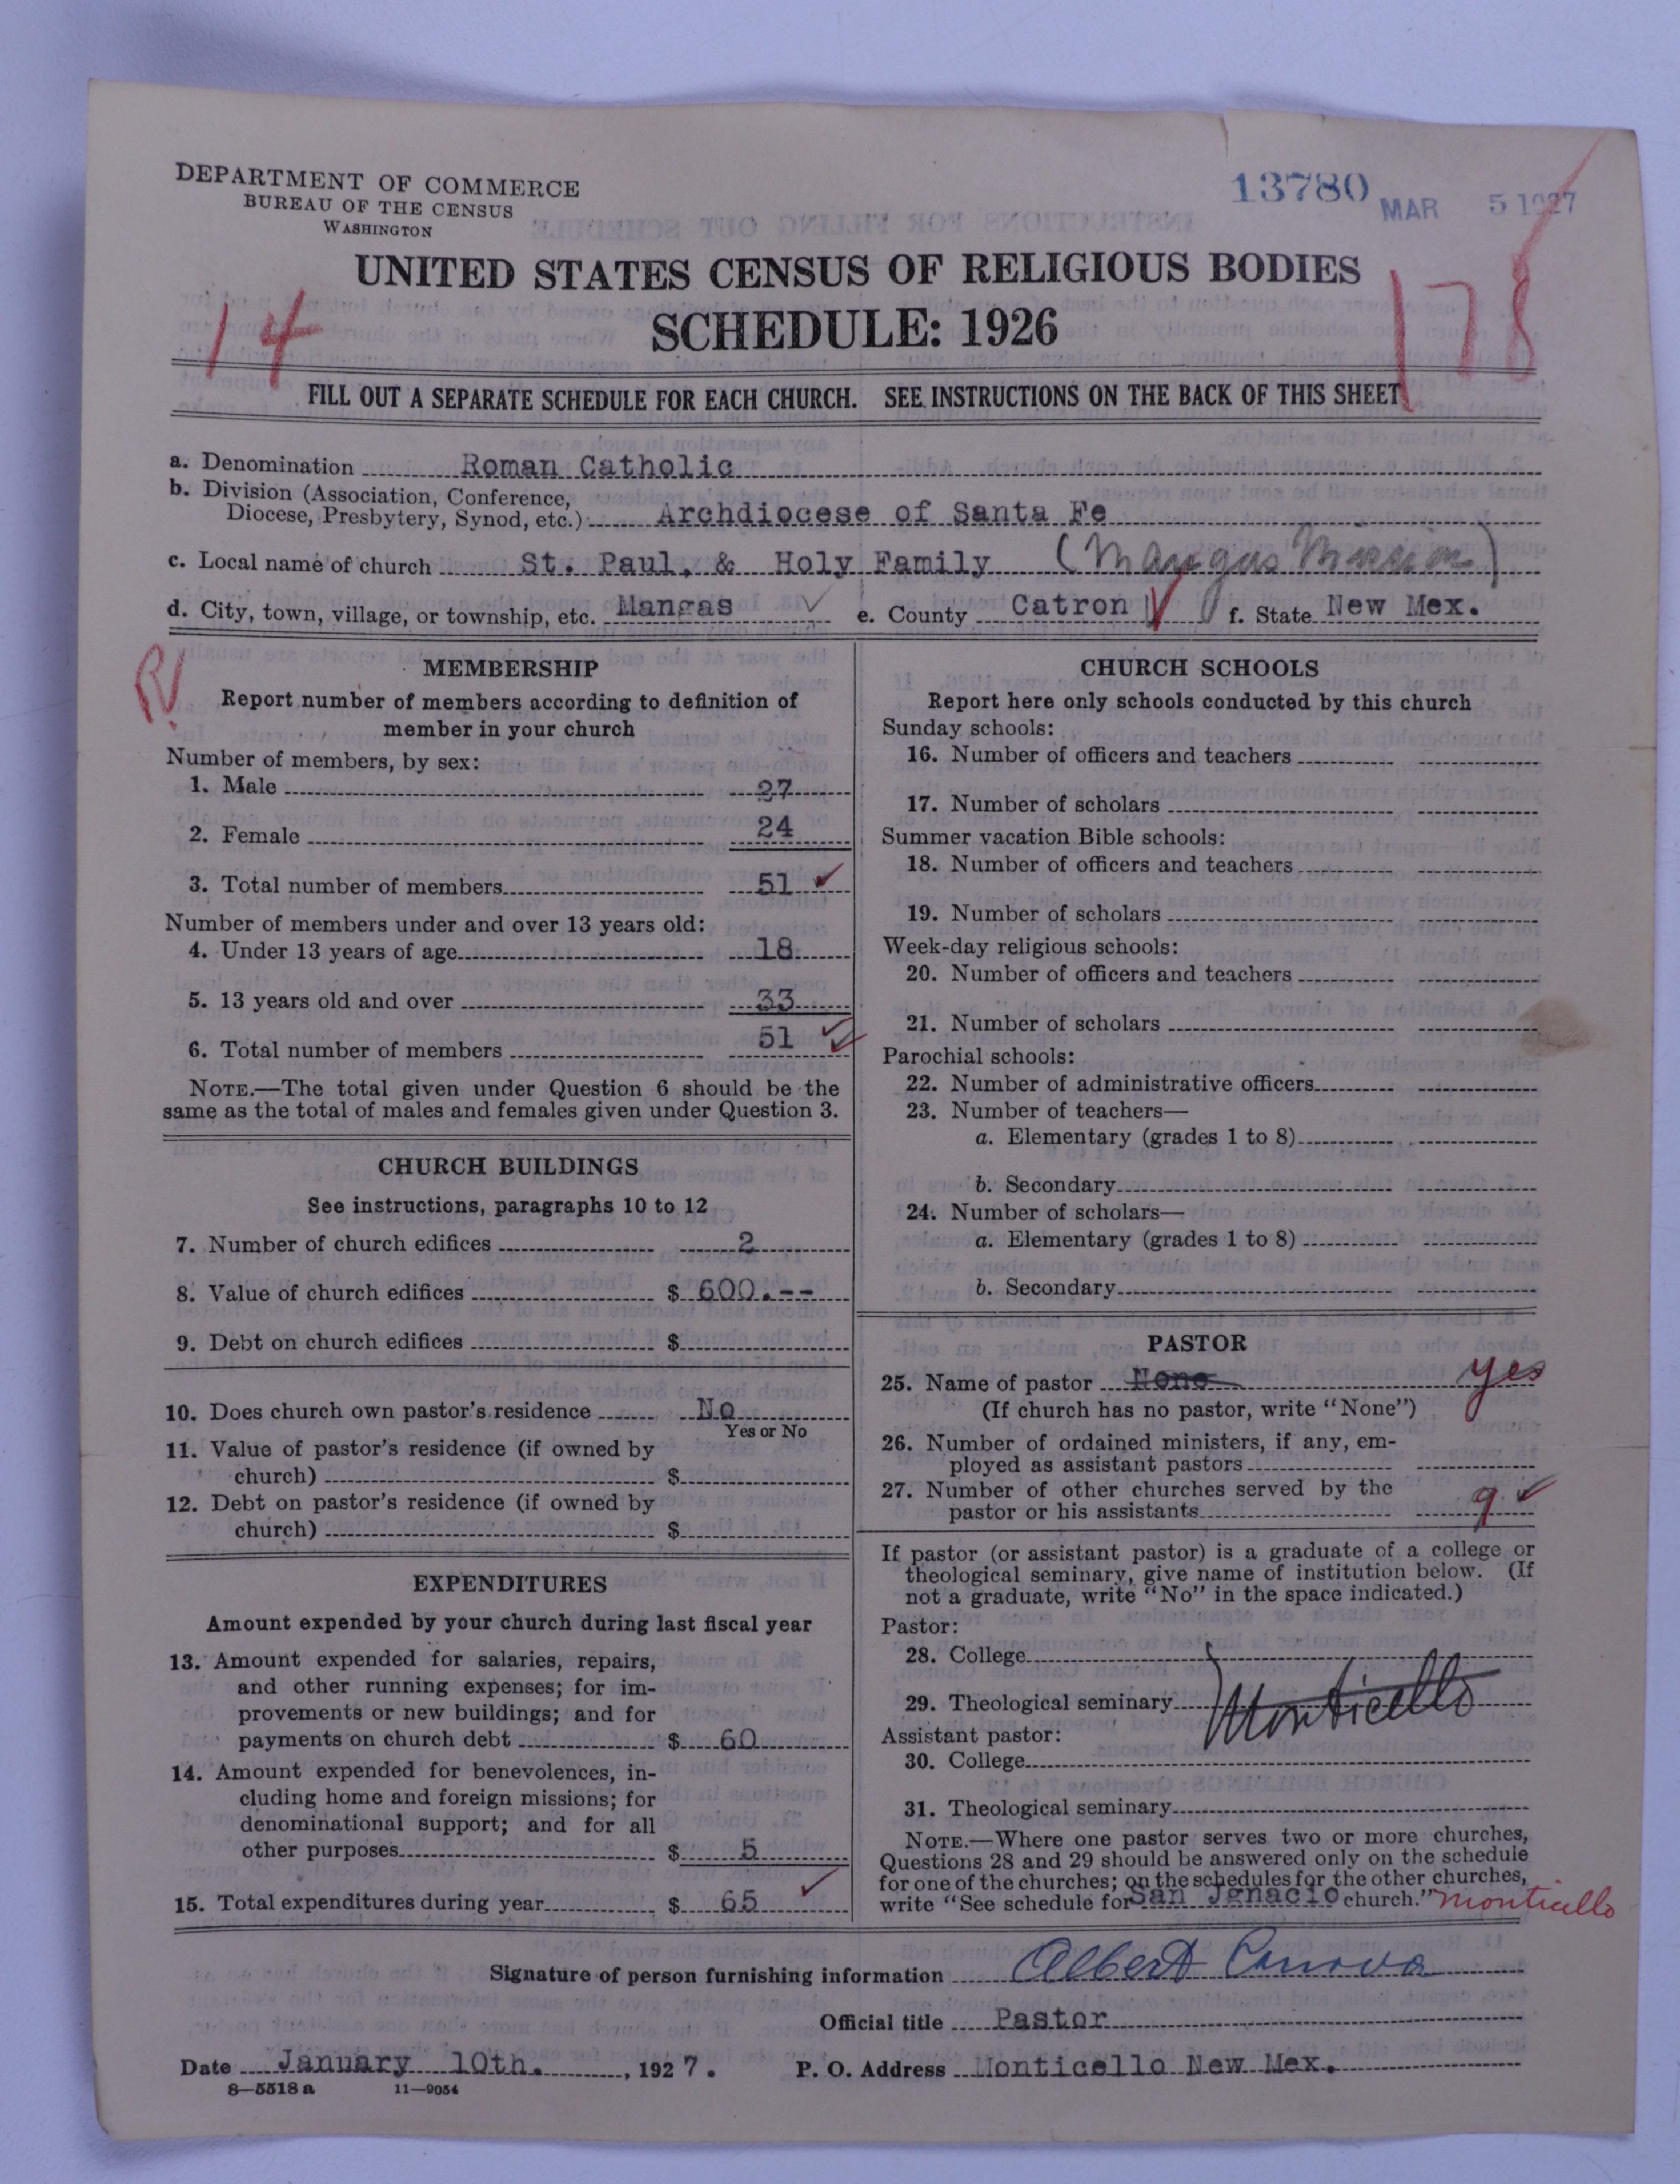 DEPARTMENT OF COMMERCE
BUREAU OF THE CENSUS
WASHINGTON
13780
MAR 5 1927
UNITED STATES CENSUS OF RELIGIOUS BODIES
SCHEDULE: 1926
14
178
FILL OUT A SEPARATE SCHEDULE FOR EACH CHURCH. SEE INSTRUCTIONS ON THE BACK OF THIS SHEET
a. Denomination Roman Catholic
b. Division (Association, Conference,
Diocese, Presbytery, Synod, etc.) Archdiocese of Santa Fe
c. Local name of church St. Paul, & Holy Family (Mangas Mission)
d. City, town, village, or township, etc. Mangas ✓ e. County Catron ✓ f. State New Mex.
R
MEMBERSHIP
Report number of members according to definition of
member in your church
Number of members, by sex:
1. Male 27
2. Female 24
3. Total number of members 51 ✓
Number of members under and over 13 years old:
4. Under 13 years of age 18
5. 13 years old and over 33
6. Total number of members 51 ✓
NOTE.—The total given under Question 6 should be the
same as the total of males and females given under Question 3.
CHURCH BUILDINGS
See instructions, paragraphs 10 to 12
7. Number of church edifices 2
8. Value of church edifices $ 600.--
9. Debt on church edifices $
10. Does church own pastor's residence No
Yes or No
11. Value of pastor's residence (if owned by
church) $
12. Debt on pastor's residence (if owned by
church) $
EXPENDITURES
Amount expended by your church during last fiscal year
13. Amount expended for salaries, repairs,
and other running expenses; for im-
provements or new buildings; and for
payments on church debt $ 60
14. Amount expended for benevolences, in-
cluding home and foreign missions; for
denominational support; and for all
other purposes $ 5
15. Total expenditures during year $ 65 ✓
CHURCH SCHOOLS
Report here only schools conducted by this church
Sunday schools:
16. Number of officers and teachers
17. Number of scholars
Summer vacation Bible schools:
18. Number of officers and teachers
19. Number of scholars
Week-day religious schools:
20. Number of officers and teachers
21. Number of scholars
Parochial schools:
22. Number of administrative officers
23. Number of teachers—
a. Elementary (grades 1 to 8)
b. Secondary
24. Number of scholars—
a. Elementary (grades 1 to 8)
b. Secondary
PASTOR
25. Name of pastor None yes
(If church has no pastor, write "None")
26. Number of ordained ministers, if any, em-
ployed as assistant pastors
27. Number of other churches served by the
pastor or his assistants 9 ✓
If pastor (or assistant pastor) is a graduate of a college or
theological seminary, give name of institution below. (If
not a graduate, write "No" in the space indicated.)
Pastor:
28. College
29. Theological seminary Monticello
Assistant pastor:
30. College
31. Theological seminary
NOTE.—Where one pastor serves two or more churches,
Questions 28 and 29 should be answered only on the schedule
for one of the churches; on the schedules for the other churches,
write "See schedule for San Jgnacio church." Monticello
Signature of person furnishing information Albert Canova
Official title Pastor
Date January 10th. , 1927. P. O. Address Monticello New Mex.
8—5518 a 11—9054